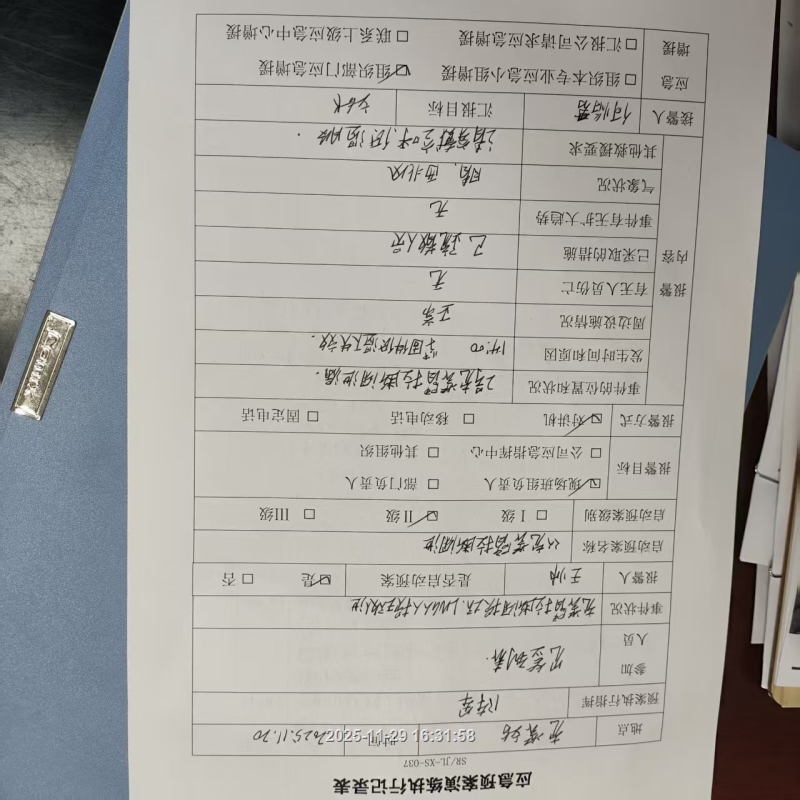 应急预案演练执行记录表
SR/JL-XS-037
地点 充装站 时间 2025.11.20
预案执行指挥
参加人员 见签到表
事件状况 充装臂拉断阀
报警人 王帅 是否启动预案 ☑是 □否
启动预案名称 充装臂拉断阀泄
启动预案级别 □Ⅰ级 ☑Ⅱ级 □Ⅲ级
报警目标 ☑现场班组负责人 □部门负责人
□公司应急指挥中心 □其他组织
报警方式 ☑对讲机 □移动电话 □固定电话
报警内容
事件的位置和状况 2号充装臂拉断阀泄漏.
发生时间和原因 14:00 紧固件低温失效.
周边设施情况 正常
有无人员伤亡 无
已采取的措施 已疏散人员
事件有无扩大趋势 无
气象状况 晴, 西北风
其他救援要求
接警人 汇报目标
应急增援 □组织本专业应急小组增援 ☑组织部门应急增援
□汇报公司请求应急增援 □联系上级应急中心增援
2025-11-29 16:31:58